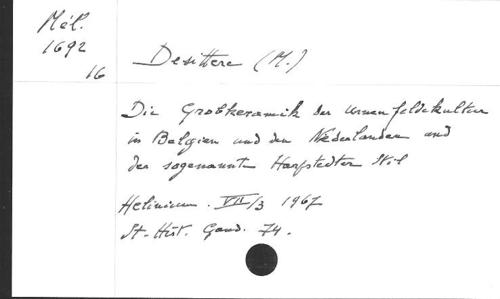 Mél.
1692
16
Desittere (M.)
Die Grobkeramik der Urnenfelderkultur
in Belgien und den Niederlanden und
der sogenannte Harpstedter Stil
Helinium. VII/3 1967
St. Hist. Gand. 74.